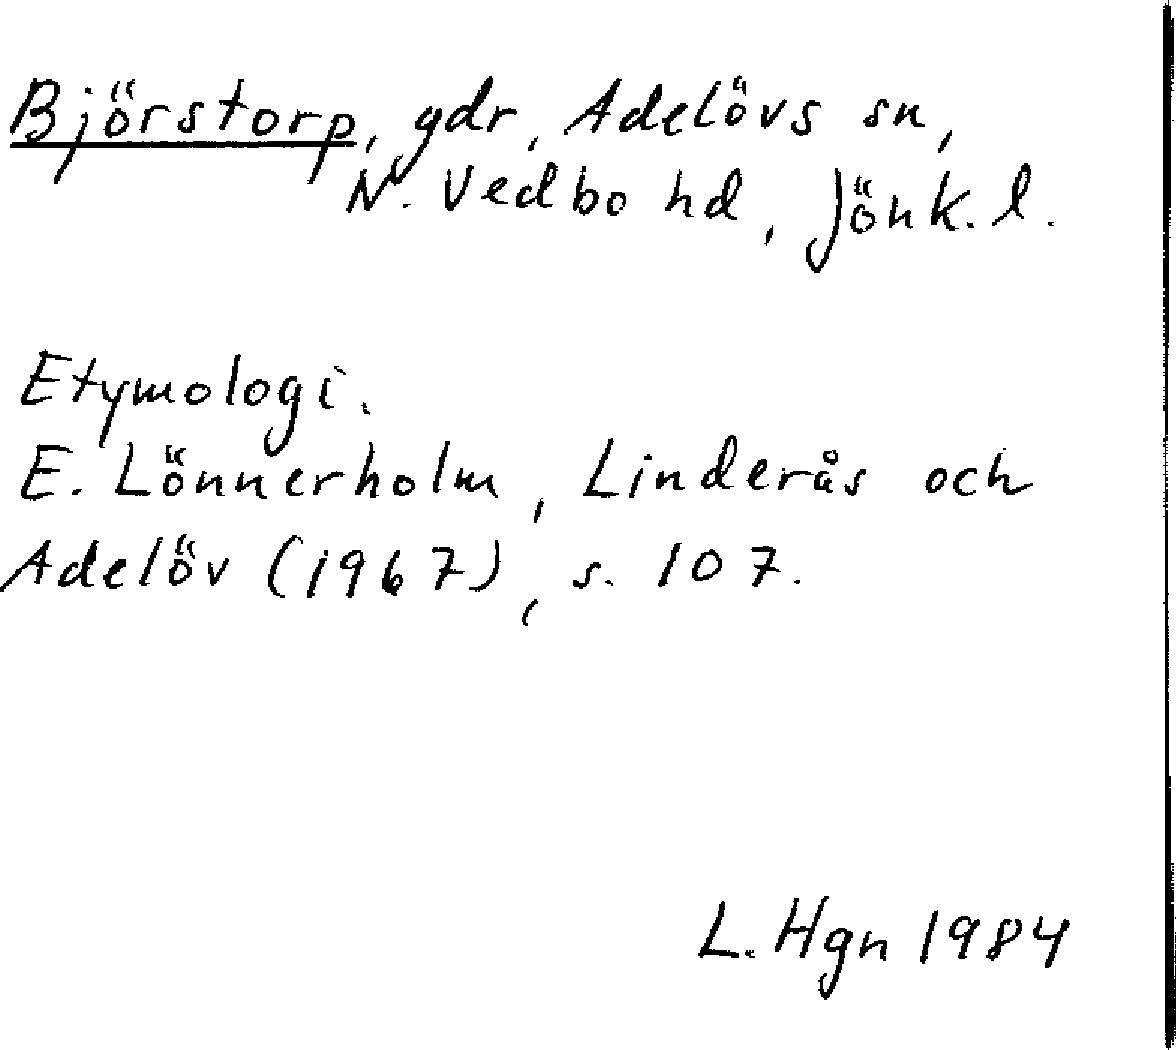 Björstorp, gdr, Adelövs sn,
N. Vedbo hd, Jönk. l.
Etymologi.
E. Lönnerholm, Linderås och
Adelöv (1967), s. 107.
L. Hgn 1984